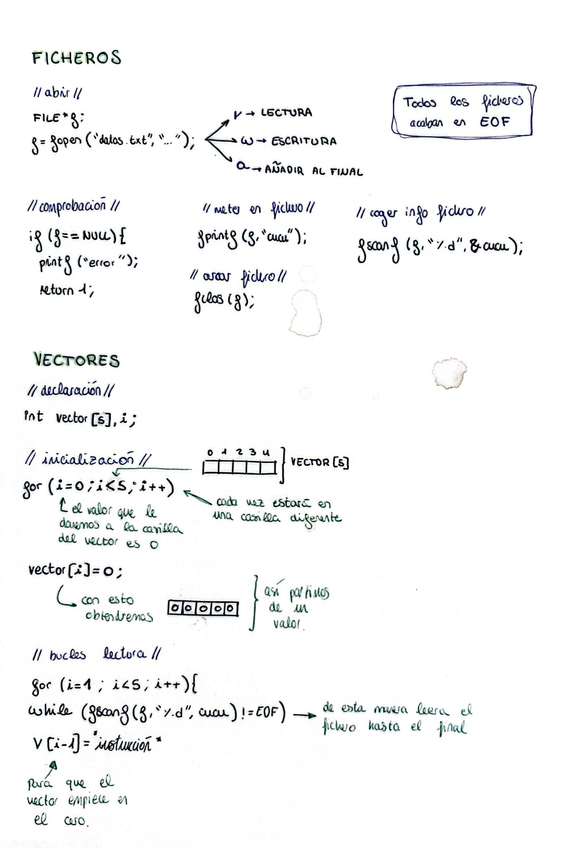 FICHEROS
// abrir //
FILE *f;
f = fopen ("datos.txt", "...");
r → LECTURA
w → ESCRITURA
a → AÑADIR AL FINAL
Todos los ficheros
acaban en EOF
// comprobación //
if (f == NULL) {
printf ("error");
return 1;
// meter en fichero //
fprintf (f, "cucu");
// cerrar fichero //
fclos (f);
// coger info fichero //
fscanf (f, "%d", &cucu);
VECTORES
// declaración //
int vector [5], i;
// inicialización //
0 1 2 3 4
VECTOR [5]
for (i=0; i<5; i++)
el valor que le
daremos a la casilla
del vector es 0
cada vez estará en
una casilla diferente
vector [i] = 0;
con esto
obtendremos
0 0 0 0 0
así partimos
de un
valor.
// bucles lectura //
for (i=1; i<5; i++) {
while (fscanf (f, "%d", cucu) != EOF)
de esta manera leerá el
fichero hasta el final
V [i-1] = "instrucción"
para que el
vector empiece en
el cero.